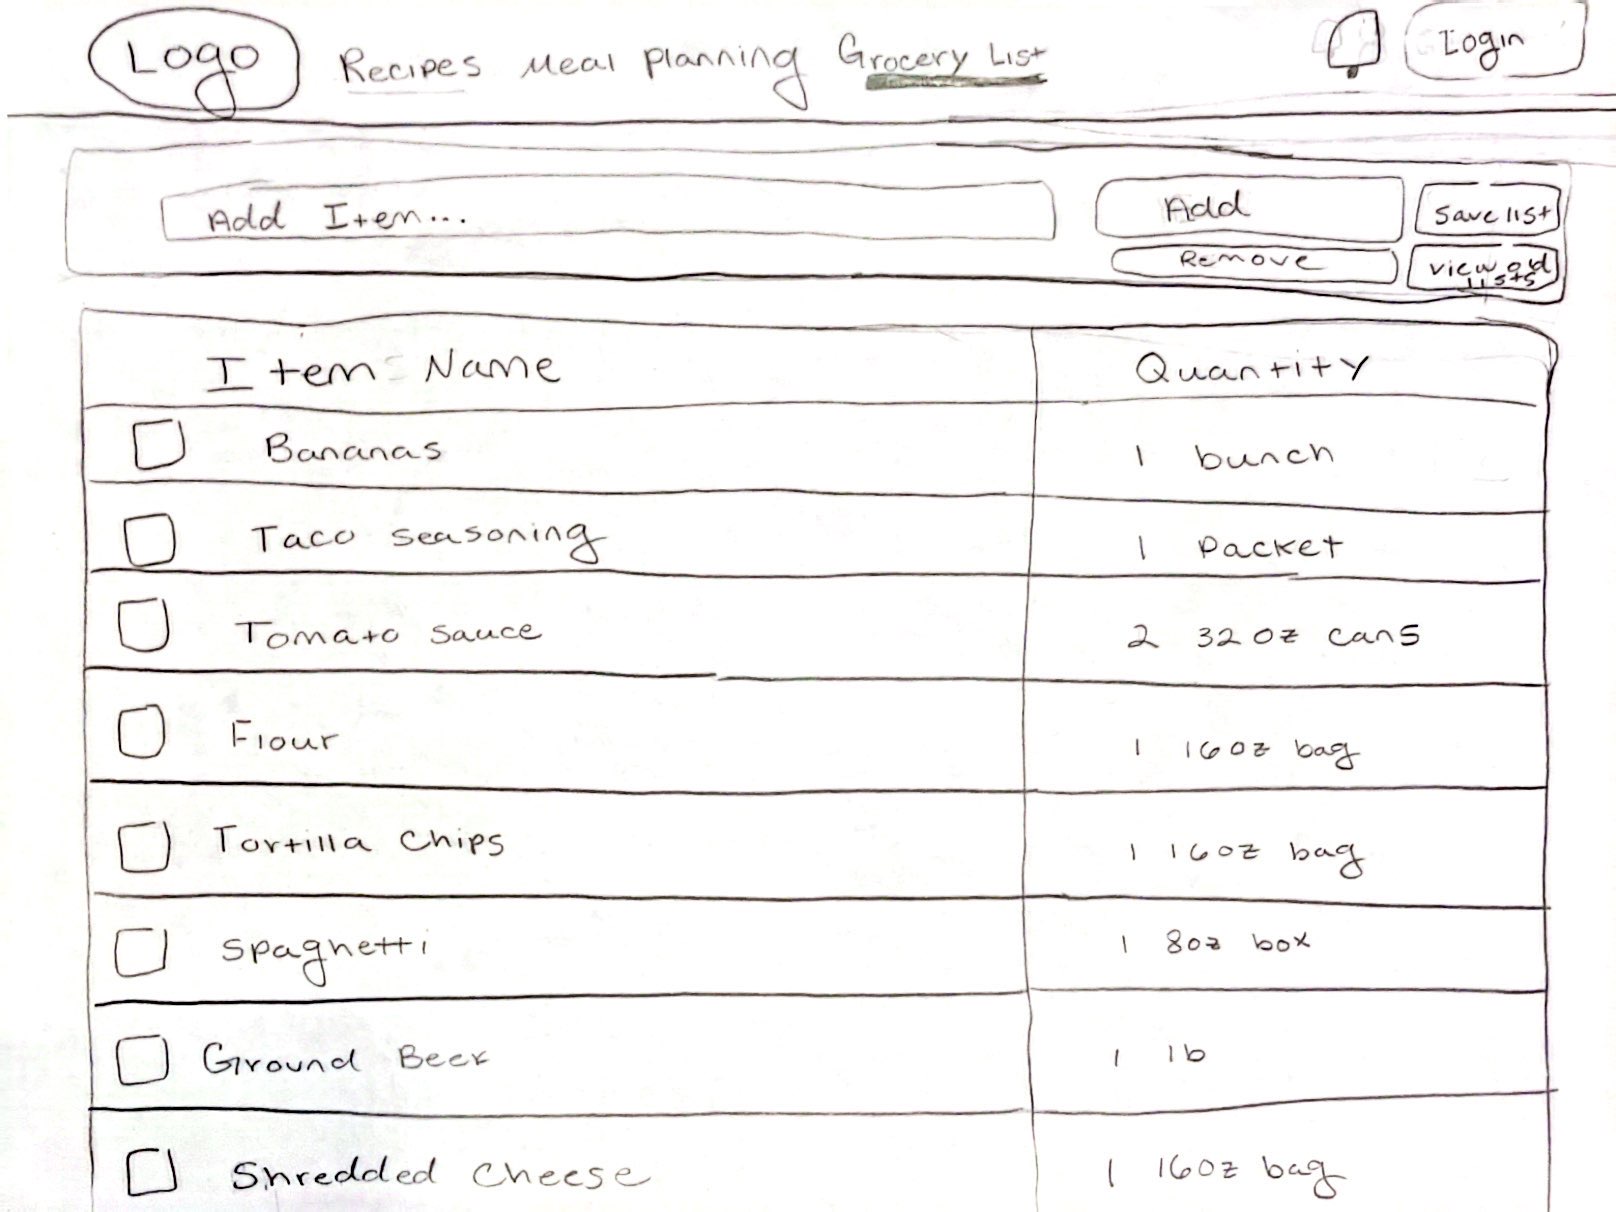 Logo Recipes Meal Planning Grocery List Login
Add Item... Add Save list
Remove View old lists
Item Name Quantity
Bananas 1 bunch
Taco seasoning 1 Packet
Tomato sauce 2 32oz cans
Flour 1 16oz bag
Tortilla Chips 1 16oz bag
Spaghetti 1 8oz box
Ground 1 lb
Shredded Cheese 1 16oz bag